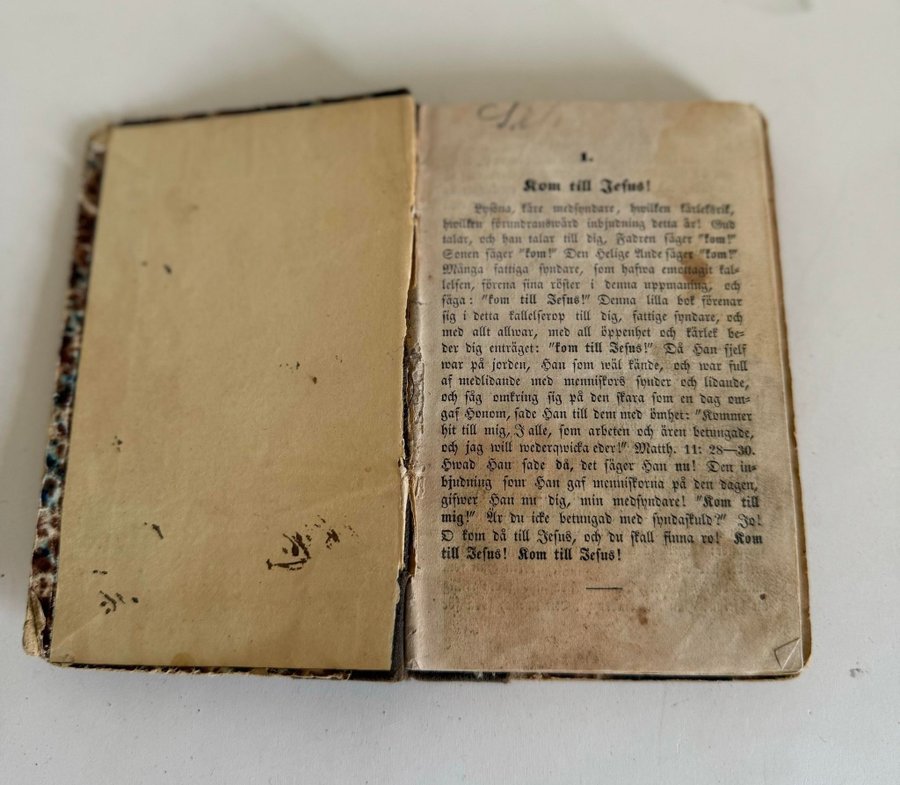 1.
Kom till Jesus!
Lyssna, käre medsyndare, hwilken kärleksrik,
hwilken förundranswärd inbjudning detta är! Gud
talar, och han talar till dig. Fadren säger "kom!"
Sonen säger "kom!" Den Helige Ande säger "kom!"
Många fattiga syndare, som hafwa emottagit kal-
lelsen, förena sina röster i denna uppmaning, och
säga: "kom till Jesus!" Denna lilla bok förenar
sig i detta kallelserop till dig, fattige syndare, och
med allt allwar, med all öppenhet och kärlek be-
der dig enträget: "kom till Jesus!" Då Han sjelf
war på jorden, Han som wäl kände, och war full
af medlidande med menniskors synder och lidande,
och såg omkring sig på den skara som en dag om-
gaf Honom, sade Han till dem med ömhet: "Kommer
hit till mig, J alle, som arbeten och ären betungade,
och jag will wederqwicka eder!" Matth. 11: 28—30.
Hwad Han sade då, det säger Han nu! Den in-
bjudning som Han gaf menniskorna på den dagen,
gifwer Han nu dig, min medsyndare! "Kom till
mig!" Är du icke betungad med syndaskuld?" Jo!
O kom då till Jesus, och du skall finna ro! Kom
till Jesus! Kom till Jesus!